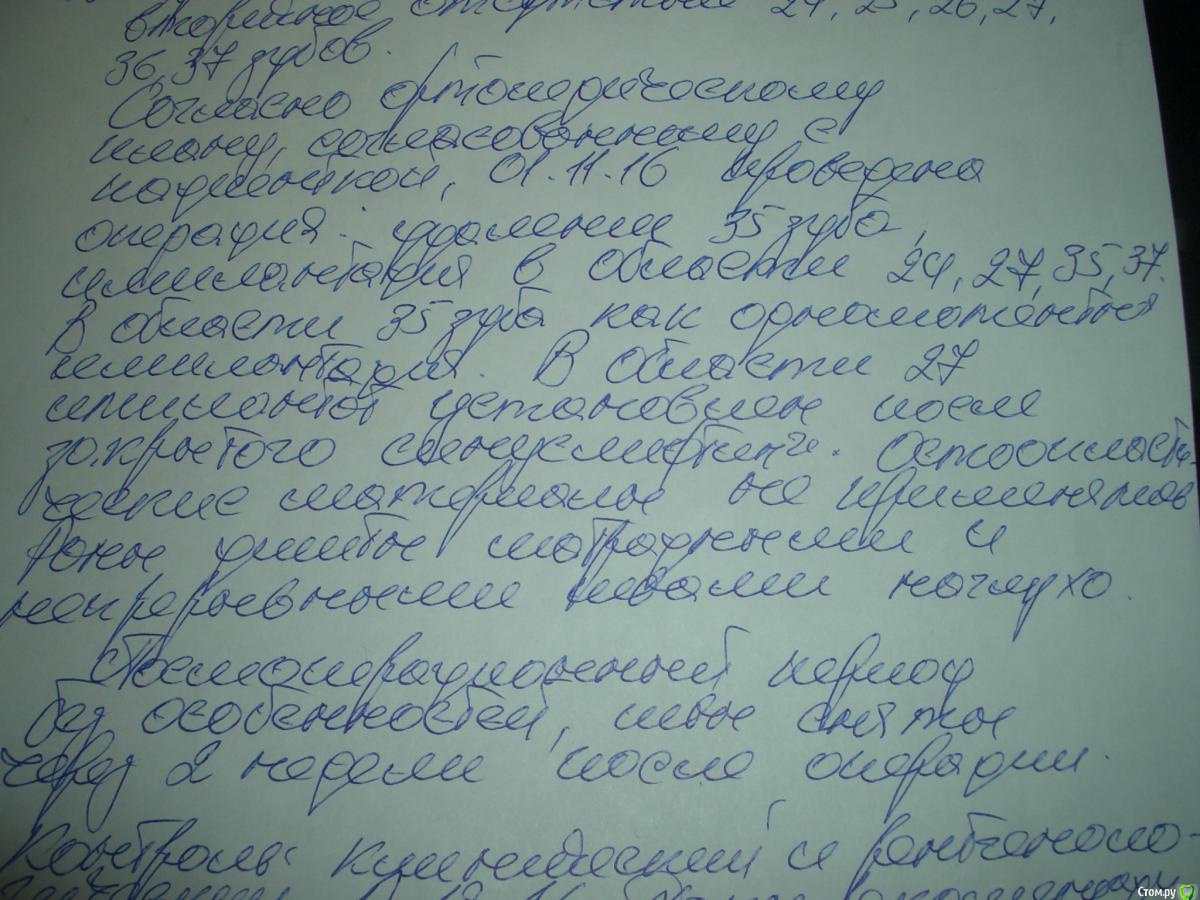 вторичное отсутствие 24, 25, 26, 27,
36, 37 зубов.
Согласно ортопедическому
плану, согласованному с
пациенткой, 01.11.16 проведена
операция: удаление 35 зуба,
имплантация в области 24, 27, 35, 37.
В области 35 зуба как одномоментная
имплантация. В области 27
имплантат установлен после
закрытого синуслифтинга. Остеопласти-
ческие материалы не применялись
Раны ушиты матрацными и
непрерывными швами наглухо.
Послеоперационный период
без особенностей, швы сняты
через 2 недели после операции.
Контроль клинический и рентгеноло-
Стом.ру